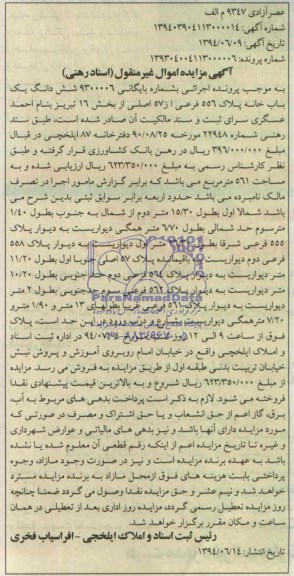 عصر آزادی ۹۳۴۷ م الف
شماره آگهی: ۱۳۹۴۰۳۹۰۴۱۱۳۰۰۰۰۱۴
تاریخ آگهی: ۱۳۹۴/۰۶/۰۹
شماره پرونده: ۱۳۹۳۰۴۰۰۴۱۱۳۰۰۰۰۶
آگهی مزایده اموال غیرمنقول (اسناد رهنی)
به موجب پرونده اجرائی بشماره بایگانی ۹۳۰۰۰۰۶ شش دانگ یک
باب خانه پلاک ۵۵۶ فرعی از ۵۷ اصلی از بخش ۱۶ تبریز بنام احمد
عسگری سرای ثبت و سند مالکیت آن صادر شده است، طبق سند
رهنی شماره ۲۲۹۴۸ مورخه ۹۰/۰۸/۲۵ دفترخانه ۸۷ ایلخچی در قبال
مبلغ ۳۹۶/۰۰۰/۰۰۰ ریال در رهن بانک کشاورزی قرار گرفته و طبق
نظر کارشناس رسمی به مبلغ ۶۲۳/۳۵۰/۰۰۰ ریال ارزیابی شده و به
مساحت ۵۶۱ مترمربع می باشد که برابر گزارش مامور اجرا در تصرف
مالک نامبرده می باشد حدود اربعه برابر سوابق ثبتی بدین شرح می
باشد شمالا اول بطول ۱۵/۳۰ متر دوم از شمال به جنوب بطول ۱/۴۰
مترسوم حد شمالی بطول ۶/۷۰ متر همگی دیواریست به دیوار پلاک
۵۵۵ فرعی شرقا بطول اول دیواریست به دیوار پلاک ۵۵۸
فرعی دوم دیواریست به باقیمانده پلاک ۵۷ اصلی جنوبا اول بطول ۱۱/۲۰
متر دیواریست به دیوار پلاک ۵۶۴ فرعی دوم جنوبی بطول ۱۰/۲۰
متر دیواریست به دیوار پلاک ۵۶۲ فرعی سوم جنوبی بطول ۲ متر
دیواریست به دیوار پلاک ۵۶۱ فرعی غربا بطولهای ۱۳ متر و ۱/۹۰ متر و
۷/۲۰ مترهمگی دیواریست بشارع و درب ورود در این حد است، پلاک
فوق از ساعت ۹ الی ۱۲ روز مورخ در اداره ثبت اسناد
و املاک ایلخچی واقع در خیابان امام روبروی آموزش و پروش نبش
خیابان تربیت بدنی طبقه اول از طریق مزایده به فروش می رسد. مزایده
از مبلغ ۶۲۳/۳۵۰/۰۰۰ ریال شروع و به بالاترین قیمت پیشنهادی نقدا
فروخته می شود. لازم به ذکر است پرداخت بدهی های مربوط به آب،
برق، گاز اعم از حق انشعاب و یا حق اشتراک و مصرف در صورتی که
مورد مزایده دارای آنها باشد و نیز بدهی های مالیاتی و عوارض شهرداری
و غیره تا تاریخ مزایده اعم از اینکه رقم قطعی آن معلوم شده یا نشده
باشد به عهده برنده مزایده است و نیز در صورت وجود مازاد، وجوه
پرداختی بابت هزینه های فوق ازمحل مازاد به برنده مزایده مسترد
خواهد شد و نیم عشر و حق مزایده نقدا وصول می گردد ضمنا چنانچه
روز مزایده تعطیل رسمی گردد، مزایده روز اداری بعد از تعطیلی در همان
ساعت و مکان مقرر برگزار خواهد شد.
رئیس ثبت اسناد و املاک ایلخچی – افراسیاب فخری
تاریخ انتشار: ۱۳۹۴/۰۶/۱۴
ParsNamadData